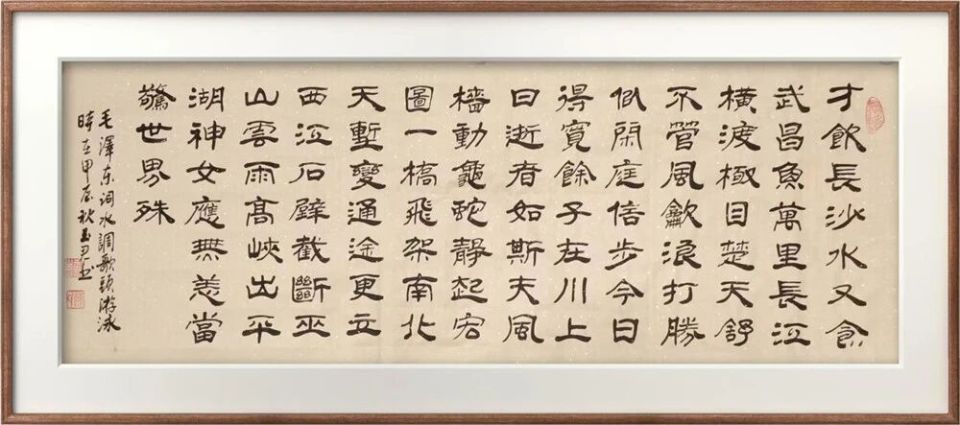 才飲長沙水又食
武昌魚萬里長江
橫渡極目楚天舒
不管風龡浪打勝
似閑庭信步今日
得寬餘子在川上
曰逝者如斯夫風
檣動龜蛇靜起宏
圖一橋飛架南北
天塹變通途更立
西江石壁截斷巫
山雲雨高峽出平
湖神女應無恙當
驚世界殊
毛澤东词水調歌頭游泳
時在甲辰秋